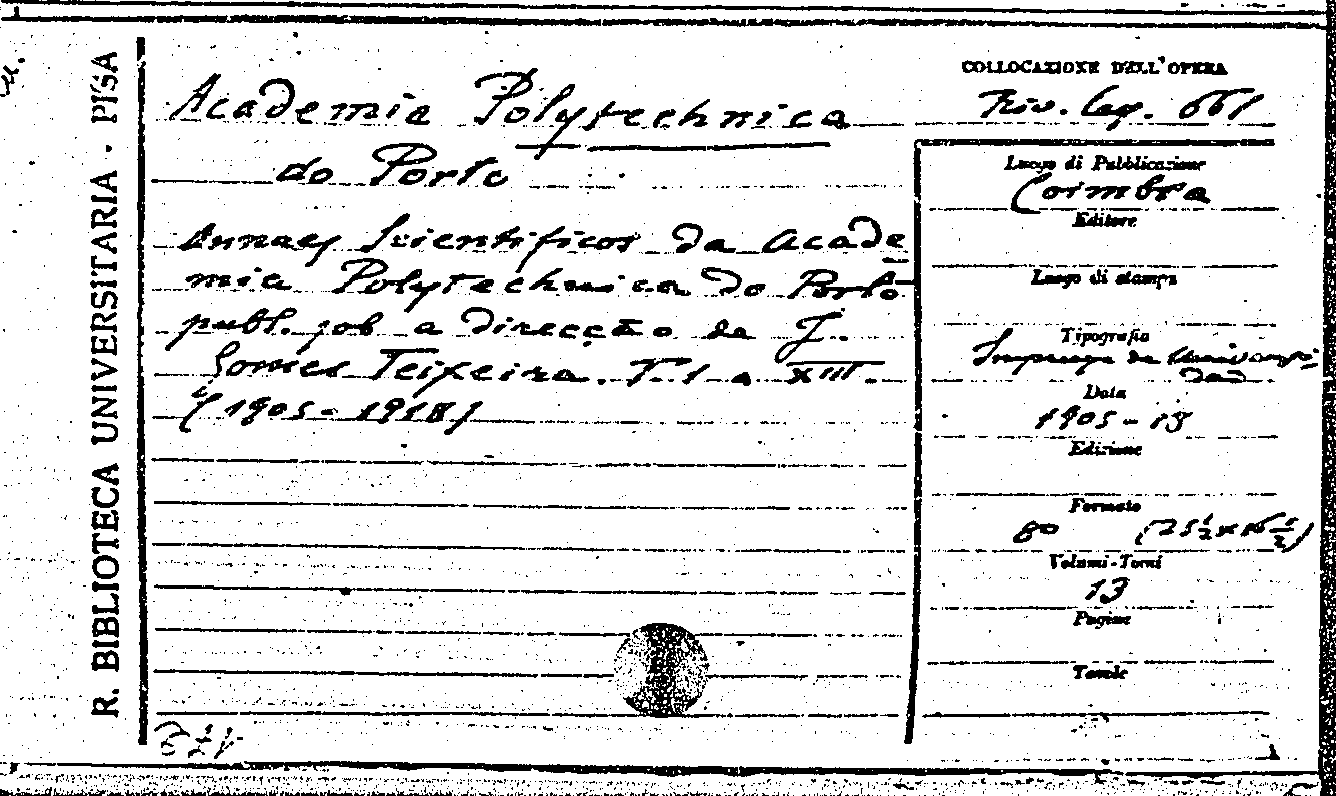 R. BIBLIOTECA UNIVERSITARIA - PISA
Academia Polytechnica
do Porto
Annaes Scientificos da Acade
mia Polytechnica do Porto
publ. sob a direcção de J.
Gomes Teixeira. T. I a XIII.
(1905-1918)
COLLOCAZIONE DELL'OPERA
Riv. leg. 661
Luogo di Pubblicazione
Coimbra
Editore
Luogo di stampa
Tipografia
da
dade
Data
1905-18
Edizione
Formato
8º (25½ x 16½)
Volumi-Tomi
13
Pagine
Tavole